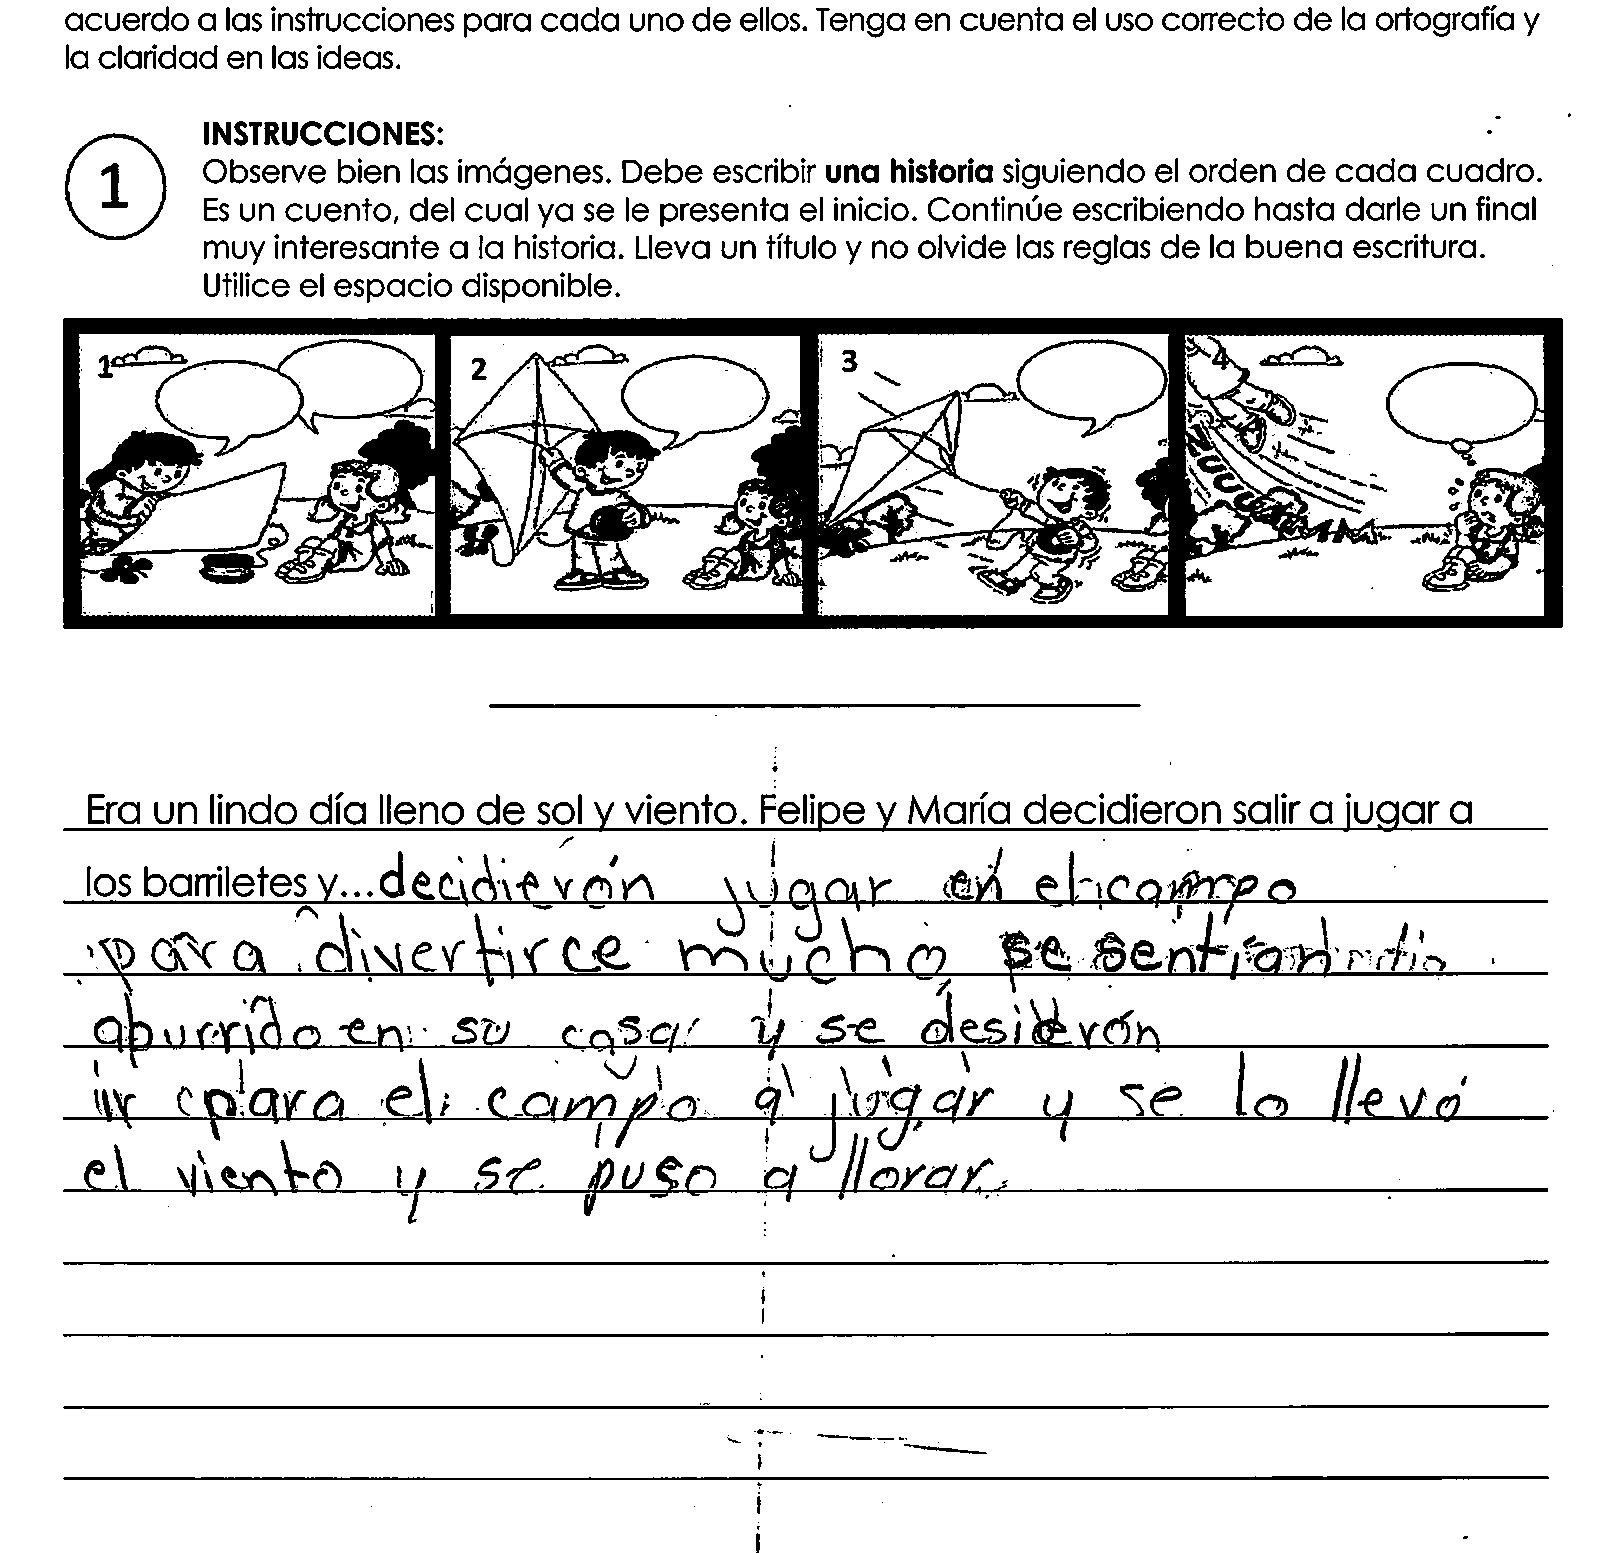 acuerdo a las instrucciones para cada uno de ellos. Tenga en cuenta el uso correcto de la ortografía y
la claridad en las ideas.
1
INSTRUCCIONES:
Observe bien las imágenes. Debe escribir una historia siguiendo el orden de cada cuadro.
Es un cuento, del cual ya se le presenta el inicio. Continúe escribiendo hasta darle un final
muy interesante a la historia. Lleva un título y no olvide las reglas de la buena escritura.
Utilice el espacio disponible.
1 2 3 4
Era un lindo día lleno de sol y viento. Felipe y María decidieron salir a jugar a
los barriletes y...decidierón jugar en el campo
para divertirce mucho se sentian
aburrido en su casa y se desiderón
ir para el campo a jugar y se lo llevó
el viento y se puso a llorar.